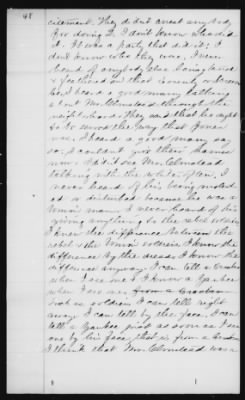 48
citement. They did not arrest anybody
for doing it. I dont know who did
it. It was a party that did it; I
dont know who they were, I never
heard of anybody else being tarred
& feathered in that County
I heard a good many talking
about Mr. Olmstead through the
neighborhood, they said that he ought
to be served the way that Jones
was, I heard a good many say
so; I couldnt give their names
now. I did see Mr. Olmstead
talking with the whites often. I
never heard of his being molested
or disturbed because he was a
Union man. I never heard of his
giving anything to the rebel soldiers
I knew the difference between the
rebel & the Union soldiers I know the
difference by the dress. I know the
difference anyway. I can tell a
when I see one & I know a Yankee
when I see one from a
soldier I can tell right
away. I can tell by the face. I can
tell a Yankee just as soon as I see
one by his face, that is from a
I think that Mr. Olmstead was a